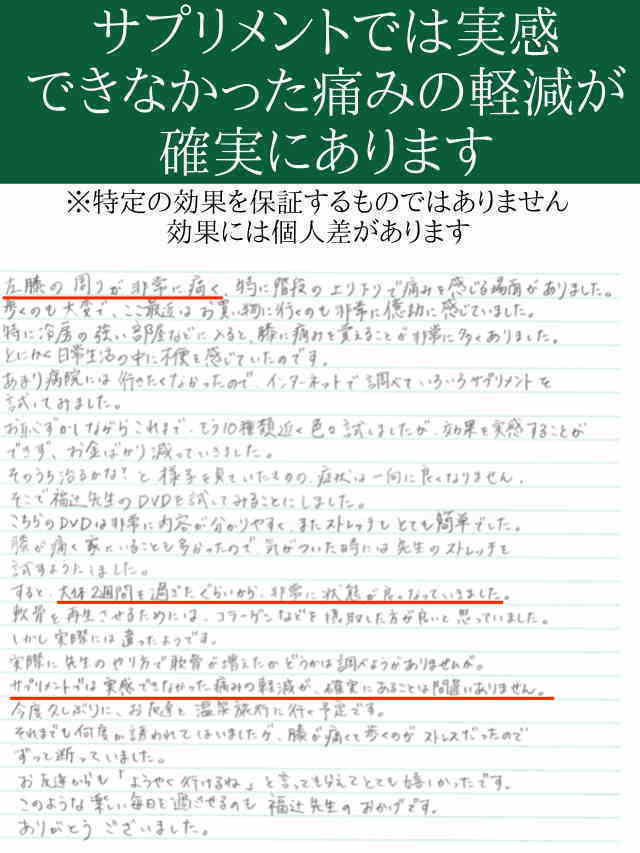 サプリメントでは実感
できなかった痛みの軽減が
確実にあります
※特定の効果を保証するものではありません
効果には個人差があります
左膝の周りが非常に痛く、特に階段の上り下りで痛みを感じる場面がありました。
歩くのも大変で、ここ最近はお買い物に行くのも非常に億劫に感じていました。
特に冷房の強い部屋などに入ると、膝に痛みを覚えることが非常に多くありました。
とにかく日常生活の中に不便を感じていたのです。
あまり病院には行きたくなかったので、インターネットで調べていろいろサプリメントを
試してみました。
お恥ずかしながらこれまで、もう10種類近く色々試しましたが、効果を実感することが
できず、お金ばかり減っていきました。
そのうち治るかな?と様子を見ていたものの、症状は一向に良くなりません。
そこで福辻先生のDVDを試してみることにしました。
こちらのDVDは非常に内容が分かりやすく、またストレッチもとても簡単でした。
膝が痛く家にいることも多かったので、気がついた時には先生のストレッチを
試すようにしました。
すると、大体2週間を過ぎたぐらいから、非常に状態が良くなっていきました。
軟骨を再生させるためには、コラーゲンなどを摂取した方が良いと思っていました。
しかし実際には違ったようです。
実際に先生のやり方で軟骨が増えたかどうかは調べようがありませんが、
サプリメントでは実感できなかった痛みの軽減が、確実にあることは間違いありません。
今度久しぶりに、お友達と温泉旅行に行く予定です。
それまでも何度か誘われてはいましたが、膝が痛くて歩くのがストレスだったので
ずっと断っていました。
お友達からも「ようやく行けるね」と言ってもらえてとても嬉しかったです。
このような楽しい毎日を過ごせるのも福辻先生のおかげです。
ありがとうございました。